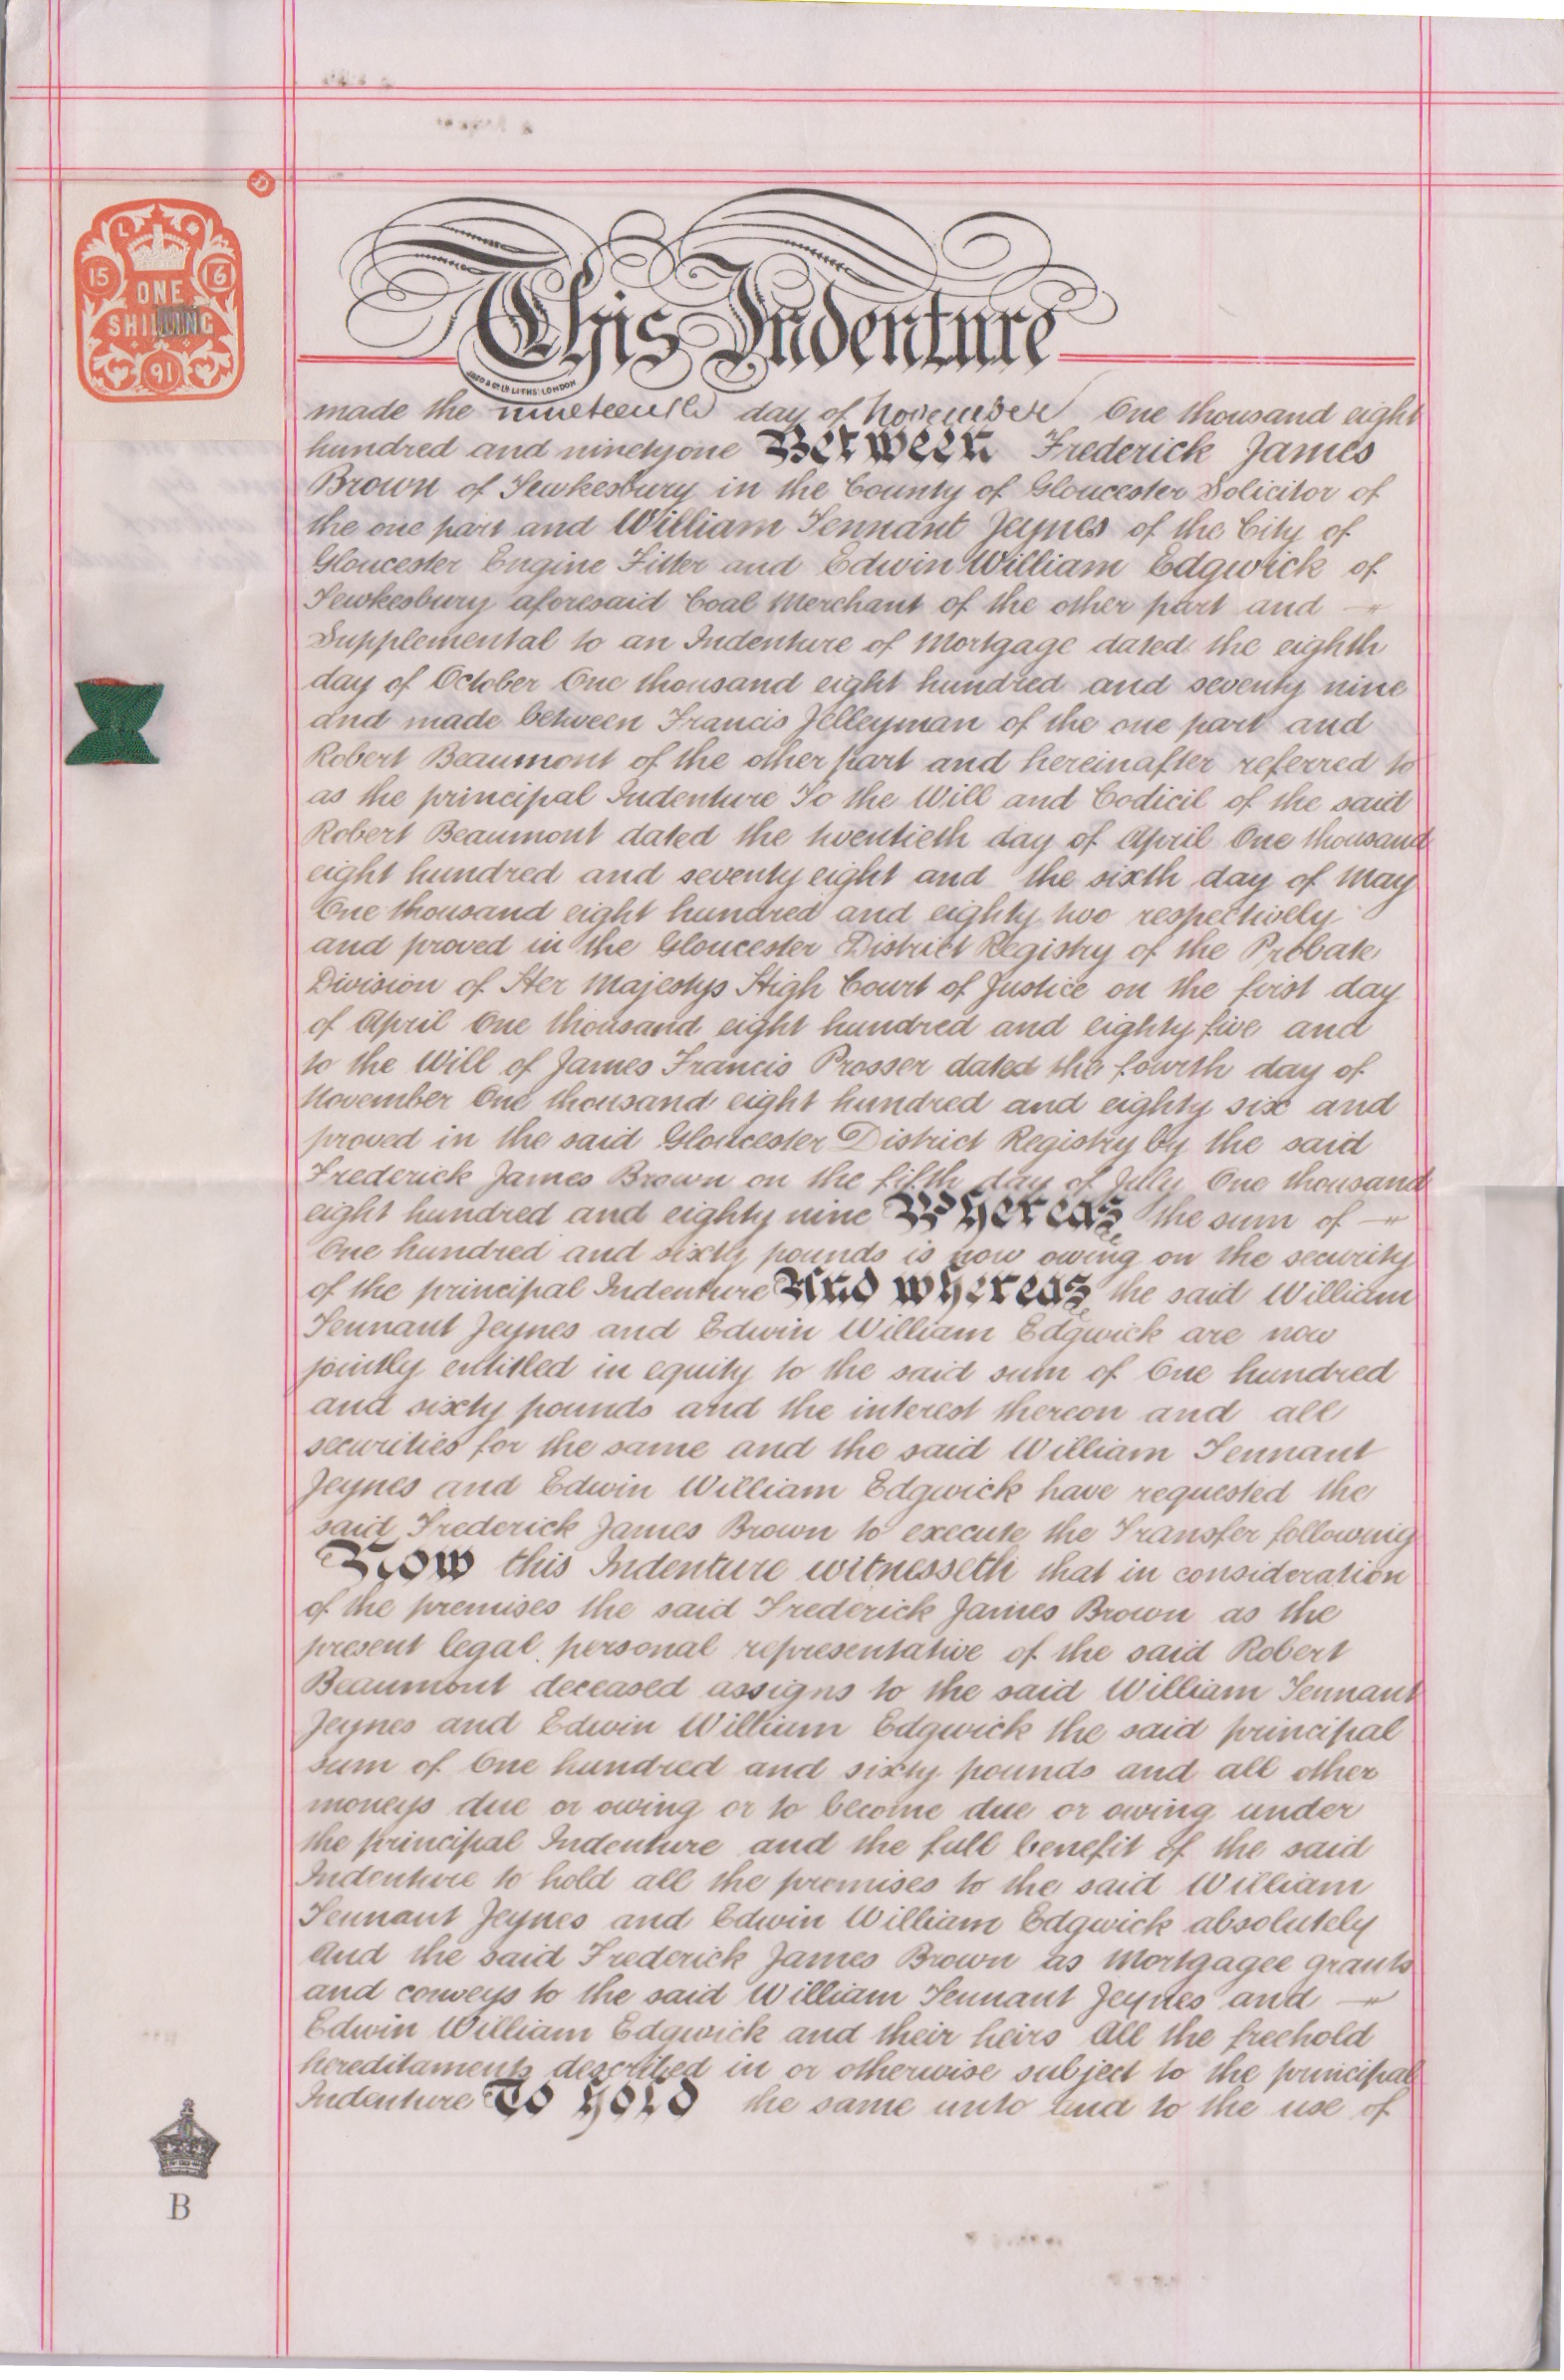 D
L
15 16
ONE
SHILLING
91
This Indenture
LONDON
made the nineteenth day of November One thousand eight
hundred and ninety one Between Frederick James
Brown of Tewkesbury in the County of Gloucester Solicitor of
the one part and William Tennant Jeynes of the City of
Gloucester Engine Fitter and Edwin William Edgwick of
Tewkesbury aforesaid Coal Merchant of the other part and
Supplemental to an Indenture of Mortgage dated the eighth
day of October One thousand eight hundred and seventy nine
and made between Francis Jelleyman of the one part and
Robert Beaumont of the other part and hereinafter referred to
as the principal Indenture To the Will and Codicil of the said
Robert Beaumont dated the twentieth day of April One thousand
eight hundred and seventy eight and the sixth day of May
One thousand eight hundred and eighty two respectively
and proved in the Gloucester District Registry of the Probate
Division of Her Majestys High Court of Justice on the first day
of April One thousand eight hundred and eighty five and
to the Will of James Francis Prosser dated the fourth day of
November One thousand eight hundred and eighty six and
proved in the said Gloucester District Registry by the said
Frederick James Brown on the fifth day of July One thousand
eight hundred and eighty nine Whereas the sum of
One hundred and sixty pounds is now owing on the security
of the principal Indenture And whereas the said William
Tennant Jeynes and Edwin William Edgwick are now
jointly entitled in equity to the said sum of One hundred
and sixty pounds and the interest thereon and all
securities for the same and the said William Tennant
Jeynes and Edwin William Edgwick have requested the
said Frederick James Brown to execute the Transfer following
Now this Indenture witnesseth that in consideration
of the premises the said Frederick James Brown as the
present legal personal representative of the said Robert
Beaumont deceased assigns to the said William Tennant
Jeynes and Edwin William Edgwick the said principal
sum of One hundred and sixty pounds and all other
moneys due or owing or to become due or owing under
the principal Indenture and the full benefit of the said
Indenture to hold all the premises to the said William
Tennant Jeynes and Edwin William Edgwick absolutely
And the said Frederick James Brown as Mortgagee grants
and conveys to the said William Tennant Jeynes and
Edwin William Edgwick and their heirs All the freehold
hereditaments described in or otherwise subject to the principal
Indenture To hold the same unto and to the use of
B